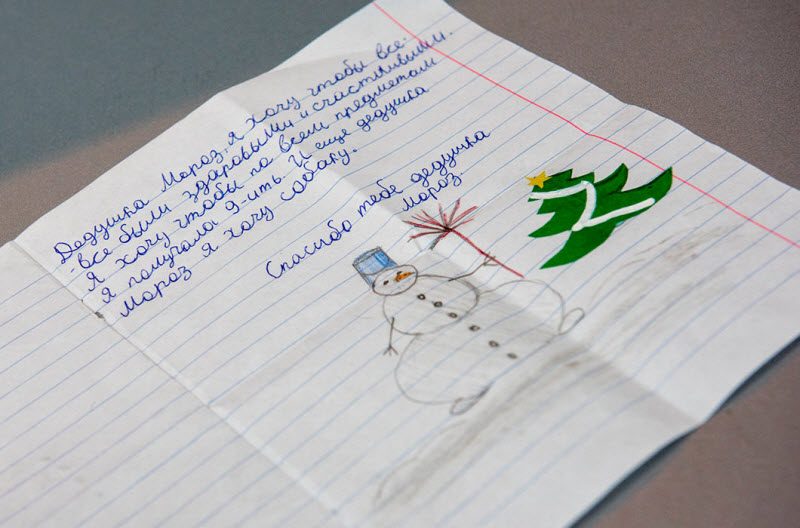 Дедушка Мороз, я хочу чтобы все-
-все были здоровыми и счастливыми.
Я хочу чтобы по всем предметам
я получала 9-ить. И еще дедушка
Мороз я хочу собаку.
Спасибо тебе дедушка
мороз